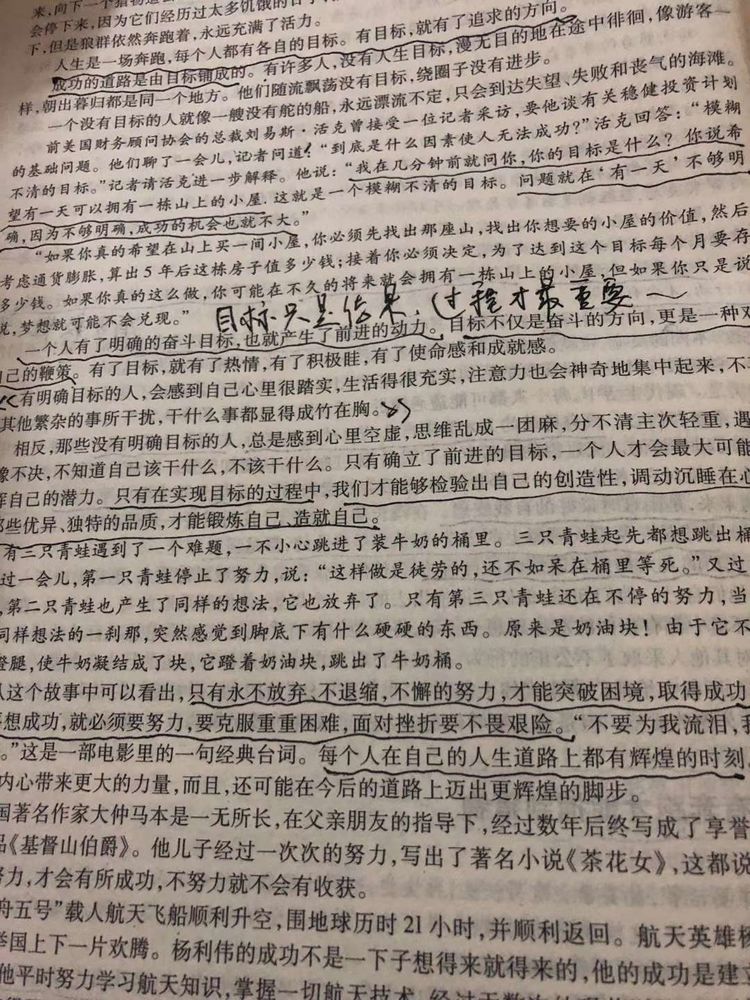 来，向下一个猎物追
会停下来，因为它们经历过太多饥饿的日子
下，但是狼群依然奔跑着，永远充满了活力。
人生是一场奔跑，每个人都有各自的目标。有目标，就有了追求的方向。
成功的道路是由目标铺成的。有许多人，没有人生目标，漫无目的地在途中徘徊，像游客一
样，朝出暮归都是同一个地方。他们随流飘荡没有目标，绕圈子没有进步。
一个没有目标的人就像一艘没有舵的船，永远漂流不定，只会到达失望、失败和丧气的海滩。
前美国财务顾问协会的总裁刘易斯·活克曾接受一位记者采访，要他谈有关稳健投资计划
的基础问题。他们聊了一会儿，记者问道：“到底是什么因素使人无法成功？”活克回答：“模糊
不清的目标。”记者请活克进一步解释。他说：“我在几分钟前就问你，你的目标是什么？你说希
望有一天可以拥有一栋山上的小屋，这就是一个模糊不清的目标。问题就在‘有一天’不够明
确，因为不够明确，成功的机会也就不大。”
“如果你真的希望在山上买一间小屋，你必须先找出那座山，找出你想要的小屋的价值，然后
考虑通货膨胀，算出5年后这栋房子值多少钱；接着你必须决定，为了达到这个目标每个月要存
多少钱。如果你真的这么做，你可能在不久的将来就会拥有一栋山上的小屋，但如果你只是说
说，梦想就可能不会兑现。”
目标只是结果，过程才最重要～
一个人有了明确的奋斗目标，也就产生了前进的动力。目标不仅是奋斗的方向，更是一种对
自己的鞭策。有了目标，就有了热情，有了积极眭，有了使命感和成就感。
有明确目标的人，会感到自己心里很踏实，生活得很充实，注意力也会神奇地集中起来，不
其他繁杂的事所干扰，干什么事都显得成竹在胸。
相反，那些没有明确目标的人，总是感到心里空虚，思维乱成一团麻，分不清主次轻重，遇
像不决，不知道自己该干什么，不该干什么。只有确立了前进的目标，一个人才会最大可能
挥自己的潜力。只有在实现目标的过程中，我们才能够检验出自己的创造性，调动沉睡在心
那些优异、独特的品质，才能锻炼自己、造就自己。
有三只青蛙遇到了一个难题，一不小心跳进了装牛奶的桶里。三只青蛙起先都想跳出桶
过一会儿，第一只青蛙停止了努力，说：“这样做是徒劳的，还不如呆在桶里等死。”又过
，第二只青蛙也产生了同样的想法，它也放弃了。只有第三只青蛙还在不停的努力，当
同样想法的一刹那，突然感觉到脚底下有什么硬硬的东西。原来是奶油块！由于它不
蹬腿，使牛奶凝结成了块，它蹬着奶油块，跳出了牛奶桶。
从这个故事中可以看出，只有永不放弃、不退缩，不懈的努力，才能突破困境，取得成功
想成功，就必须要努力，要克服重重困难，面对挫折要不畏艰险。“不要为我流泪，我
。”这是一部电影里的一句经典台词。每个人在自己的人生道路上都有辉煌的时刻，
内心带来更大的力量，而且，还可能在今后的道路上迈出更辉煌的脚步。
国著名作家大仲马本是一无所长，在父亲朋友的指导下，经过数年后终写成了享誉
品《基督山伯爵》。他儿子经过一次次的努力，写出了著名小说《茶花女》，这都说
努力，才会有所成功，不努力就不会有收获。
舟五号”载人航天飞船顺利升空，围地球历时21小时，并顺利返回。航天英雄杨
举国上下一片欢腾。杨利伟的成功不是一下子想得来就得来的，他的成功是建立
他平时努力学习航天知识，掌握一切航天技术，经过无数